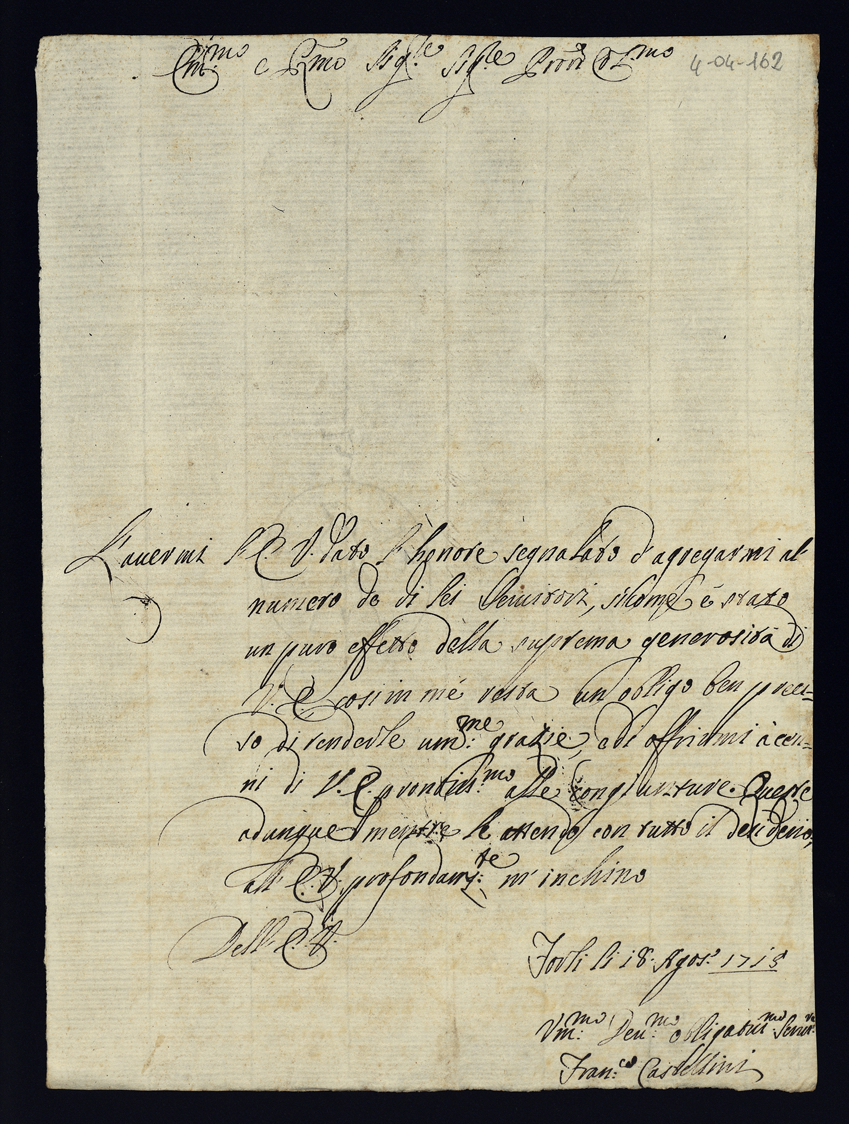 Emi:mo e Rmo Sig:re Sig:re Pron Col:mo 4-04-162
L'avermi l'E. V. dato l'honore segnalato d'agregarmi al
numero de di lei Servitori, sicome è stato
un puro effetto della suprema generosità di
V. E. cosi in mé resta un obligo ben preci=
so di renderle um:me grazie, e di offrirmi à cen=
ni di V. E. prontis:mo alle congiunture. Queste
adunque mentre le attendo con tutto il desiderio,
all'E. V. profondam:te m'inchino
Dell'E. V.
Forlì li 18 Agos:o 1718
Um:mo Dev:mo obligatis:mo Servit:re
Fran:co Castellini